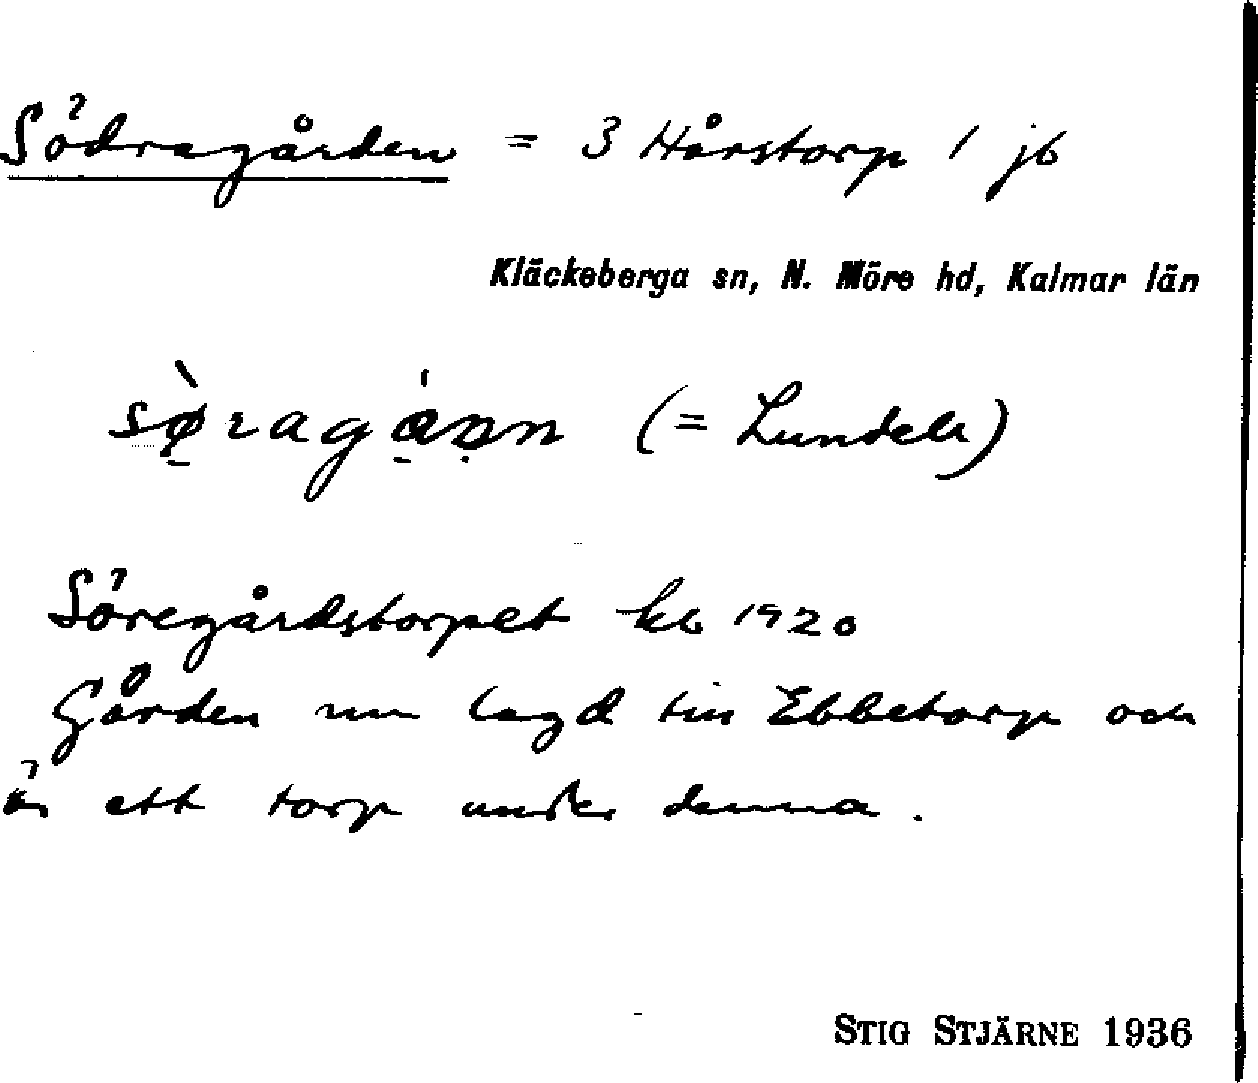 Södragården = 3 Hårstorp 1 jb
Kläckeberga sn, N. Möre hd, Kalmar län
(= Lundell)
Söregårdstorpet kb 1920
Gården nu lagd till Ebbetorp och
är ett torp under denna.
STIG STJÄRNE 1936